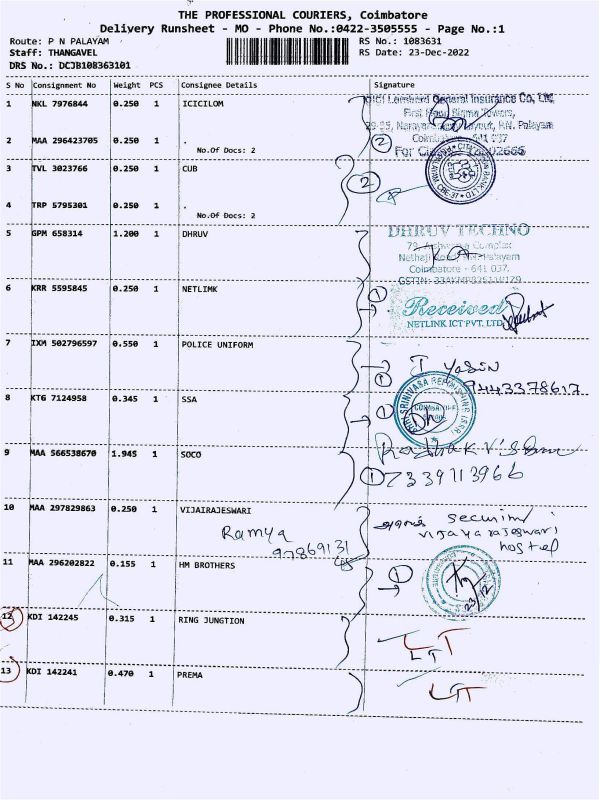 THE PROFESSIONAL COURIERS, Coimbatore
Delivery Runsheet - MO - Phone No.:0422-3505555 - Page No.:1
Route: P N PALAYAM RS No.: 1083631
Staff: THANGAVEL RS Date: 23-Dec-2022
DRS No.: DCJB108363101
S No Consignment No Weight PCS Consignee Details Signature
1 NKL 7976844 0.250 1 ICICILOM
ICICI Lombard General Insurance Co, Ltd,
2 MAA 296423705 0.250 1 .
No.Of Docs: 2
2
3 TVL 3023766 0.250 1 CUB
2
4 TRP 5795301 0.250 1 .
No.Of Docs: 2
5 GPM 658314 1.200 1 DHRUV
DHRUV TECHNO
Coimbatore - 641 037.
6 KRR 5595845 0.250 1 NETLIMK
1
Received
NETLINK ICT PVT. LTD
7 IXM 502796597 0.550 1 POLICE UNIFORM
1
T Yasin
9443378617
8 KTG 7124958 0.345 1 SSA
1
9 MAA 566538670 1.945 1 SOCO
1
7339713966
10 MAA 297829863 0.250 1 VIJAIRAJESWARI
Ramya
security
vijayarajeswari
hostel
11 MAA 296202822 0.155 1 HM BROTHERS
1
23/12
12 KDI 142245 0.315 1 RING JUNGTION
LT
13 KDI 142241 0.470 1 PREMA